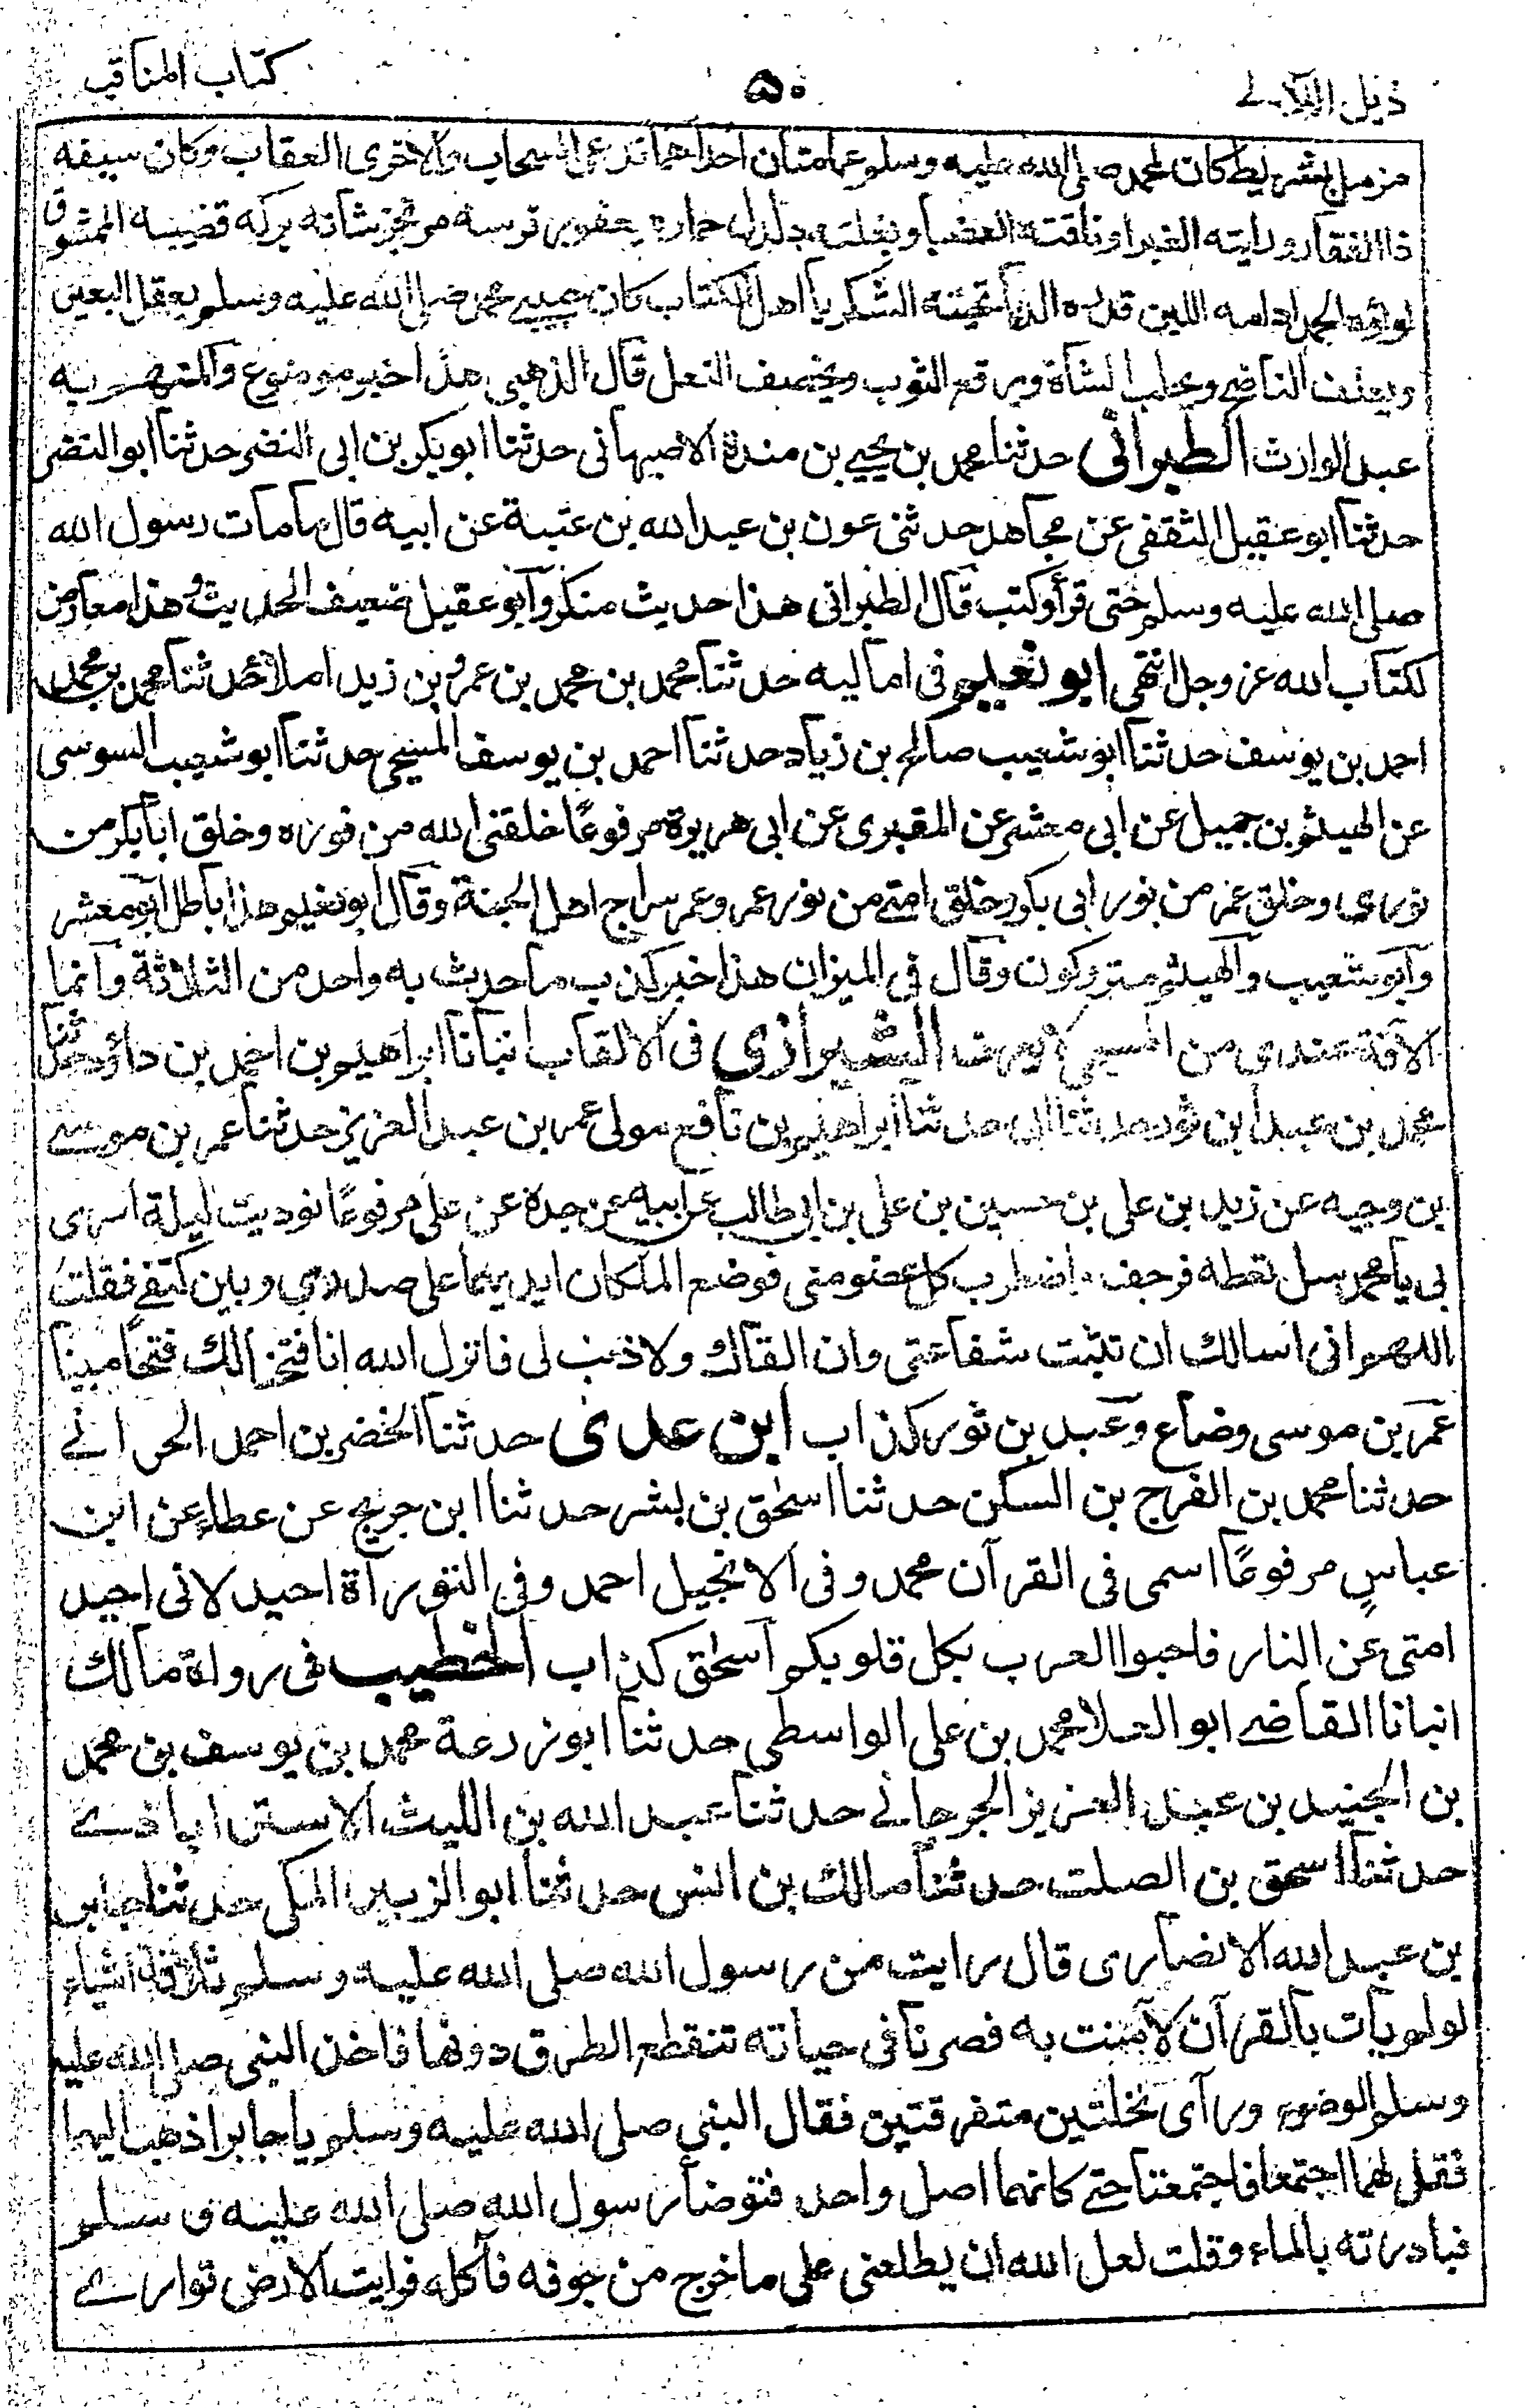 ذيل اللآلى
٥٠
كتاب المناقب
مزمل بشريط كان لمحمد صلى الله عليه وسلم عمامتان احداهما تدعى السحاب والاخرى العقاب وكان سيفه
ذا الفقار ورايته الغبرا وناقته العضبا وبغلته دلدل حماره يعفور ترسه مرتجز شاته بركه قضيبه الممشوق
لواؤه الحمد ادامه اللبن قدره الدبا تحيته الشكر يا اهل الكتاب كان محمد صلى الله عليه وسلم يعقل البعير
ويعلف الناضح ويحلب الشاة ويرقع الثوب ويخصف النعل قال الذهبى هذا خبر موضوع والمتهم به
عبد الوارث الطبرانى حدثنا محمد بن يحيى بن مندة الاصبهانى حدثنا ابو بكر بن ابى النضر حدثنا ابو النضر
حدثنا ابو عقيل الثقفى عن مجاهد حدثنى عون بن عبد الله بن عتبة عن ابيه قال مامات رسول الله
صلى الله عليه وسلم حتى قرأ وكتب قال الطبرانى هذا حديث منكر وابو عقيل ضعيف الحديث وهذا معارض
لكتاب الله عز وجل انتهى ابو نعيم فى اماليه حدثنا محمد بن محمد بن عمرو بن زيد املاء حدثنا محمد بن محمد
احمد بن يوسف حدثنا ابو شعيب صالح بن زياد حدثنا احمد بن يوسف المنبجى حدثنا ابو شعيب السوسى
عن الهيثم بن جميل عن ابى معشر عن المقبرى عن ابى هريرة مرفوعًا خلقنى الله من نوره وخلق ابا بكر من
نورى وخلق عمر من نور ابى بكر وخلق امتى من نور عمر وعمر سراج اهل الجنة وقال ابو نعيم هذا باطل ابو معشر
وابو شعيب والهيثم متروكون وقال فى الميزان هذا خبر كذب ما حدث به واحد من الثلاثة وانما
الآفة عندى من المسيحى لا يعرف الشيرازى فى الالقاب انبانا ابراهيم بن احمد بن داؤد حدثنا
محمد بن عبد ابن ثور حدثنا ابى حدثنا ابراهيم بن نافع مولى عمر بن عبد العزيز حدثنا عمر بن موسى
بن وجيه عن زيد بن على بن حسين بن على بن ابى طالب عن ابيه عن جده عن على مرفوعًا نوديت ليلة اسرى
بى يا محمد سل تعطه فوجف واضطرب كل عضو منى فوضع الملكان ايديهما على صدرى وبين كتفى فقلت
اللهم انى اسالك ان تثبت شفاعتى وان القاك ولا ذنب لى فانزل الله انا فتحنا لك فتحًا مبينا
عمر بن موسى وضاع وعبد بن ثور كذاب ابن عدى حدثنا الخضر بن احمد الحرانى
حدثنا محمد بن الفرج بن السكن حدثنا اسحٰق بن بشر حدثنا ابن جريج عن عطاء عن ابن
عباسٍ مرفوعًا اسمى فى القرآن محمد وفى الانجيل احمد وفى التوراة احيد لانى احيد
امتى عن النار فاحبوا العرب بكل قلوبكم اسحٰق كذاب الخطيب فى رواة مالك
انبانا القاضى ابو العلا محمد بن على الواسطى حدثنا ابو زرعة محمد بن يوسف بن محمد
بن الجنيد بن عبد العزيز الجرجانى حدثنا عبد الله بن الليث الاستراباذى
حدثنا اسحق بن الصلت حدثنا مالك بن انس حدثنا ابو الزبير المكى حدثنا جابر
بن عبد الله الانصارى قال رايت من رسول الله صلى الله عليه وسلم ثلاثة اشياء
لولم يات بالقرآن لآمنت به فصرنا فى حياته تنقطع الطرق دونها فاخذ النبى صلى الله عليه
وسلم الوضوء وراى نخلتين متفرقتين فقال النبى صلى الله عليه وسلم يا جابر اذهب اليهما
فقل لهما اجتمعا فاجتمعتا حتى كانهما اصل واحد فتوضأ رسول الله صلى الله عليه و سلم
فبادرته بالماء وقلت لعل الله ان يطلعنى على ما خرج من جوفه فآكله فرايت الارض توارى